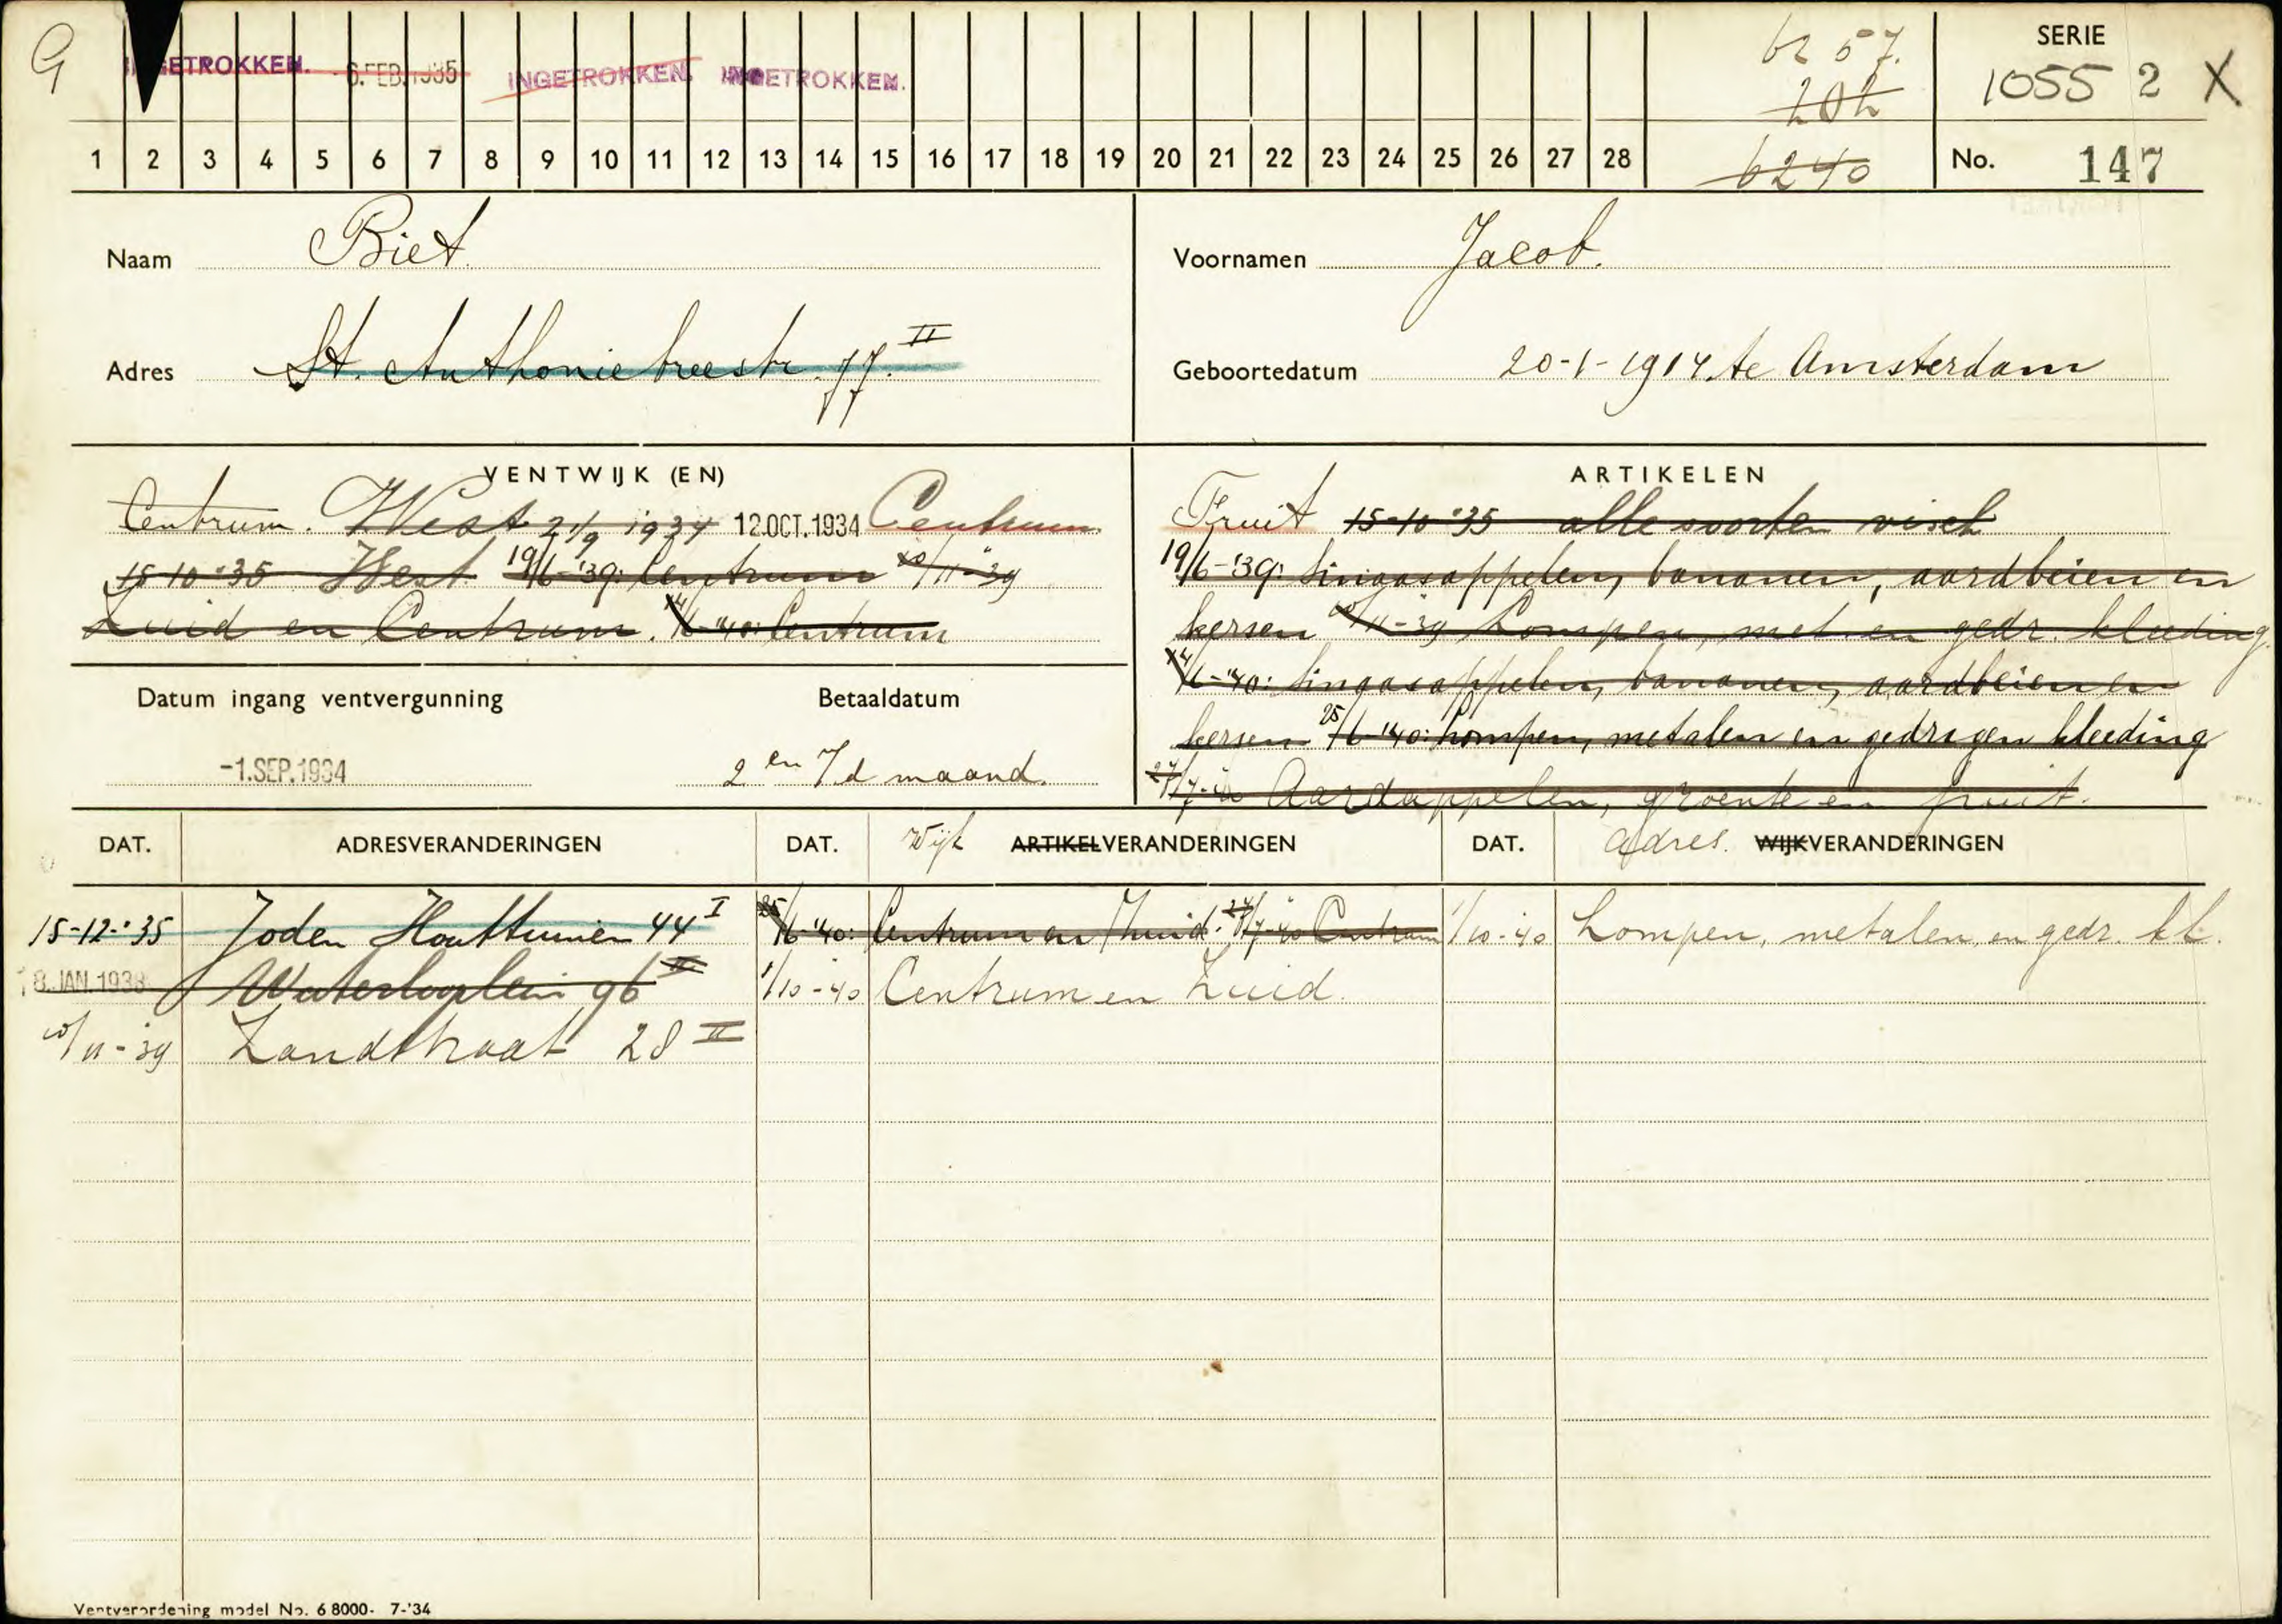 G INGETROKKEN. -6.FEB.1935 INGETROKKEN. INGETROKKEN.
6257.
202
6240
SERIE
1055 2 X
1 2 3 4 5 6 7 8 9 10 11 12 13 14 15 16 17 18 19 20 21 22 23 24 25 26 27 28
No. 147
Naam Biet
Voornamen Jacob.
Adres St. Anthoniebreestr. 77. II
Geboortedatum 20-1-1914 te Amsterdam
VENTWIJK (EN)
Centrum. West 21/9 1934 12.OCT.1934 Centrum
15-10-'35 West 19/6-'39: Centrum 20/11-39
Zuid en Centrum. 14/6-'40: Centrum
ARTIKELEN
Fruit 15-10-'35 alle soorten visch
19/6-'39: Sinaasappelen, bananen, aardbeien en
kersen 20/11-39 Lompen, met. en gedr. kleeding
14/6-'40: Sinaasappelen, bananen, aardbeien en
kersen 25/6-'40: Lompen, metalen en gedragen kleeding
27/7-40 Aardappelen, groente en fruit.
Datum ingang ventvergunning
-1.SEP.1934
Betaaldatum
2 en 7 d maand.
DAT. ADRESVERANDERINGEN
DAT. Wijk ARTIKELVERANDERINGEN
DAT. Adres. WIJKVERANDERINGEN
15-12-'35 Joden Houttuinen 44 I
25/6-'40: Centrum en Zuid. 27/7-40 Centrum
1/10-40 Lompen, metalen, en gedr. kl.
18.JAN.1938 Waterlooplein 96 II
1/10-40 Centrum en Zuid.
20/11-39 Zandstraat 28 II
Ventverordening model No. 6 8000- 7-'34